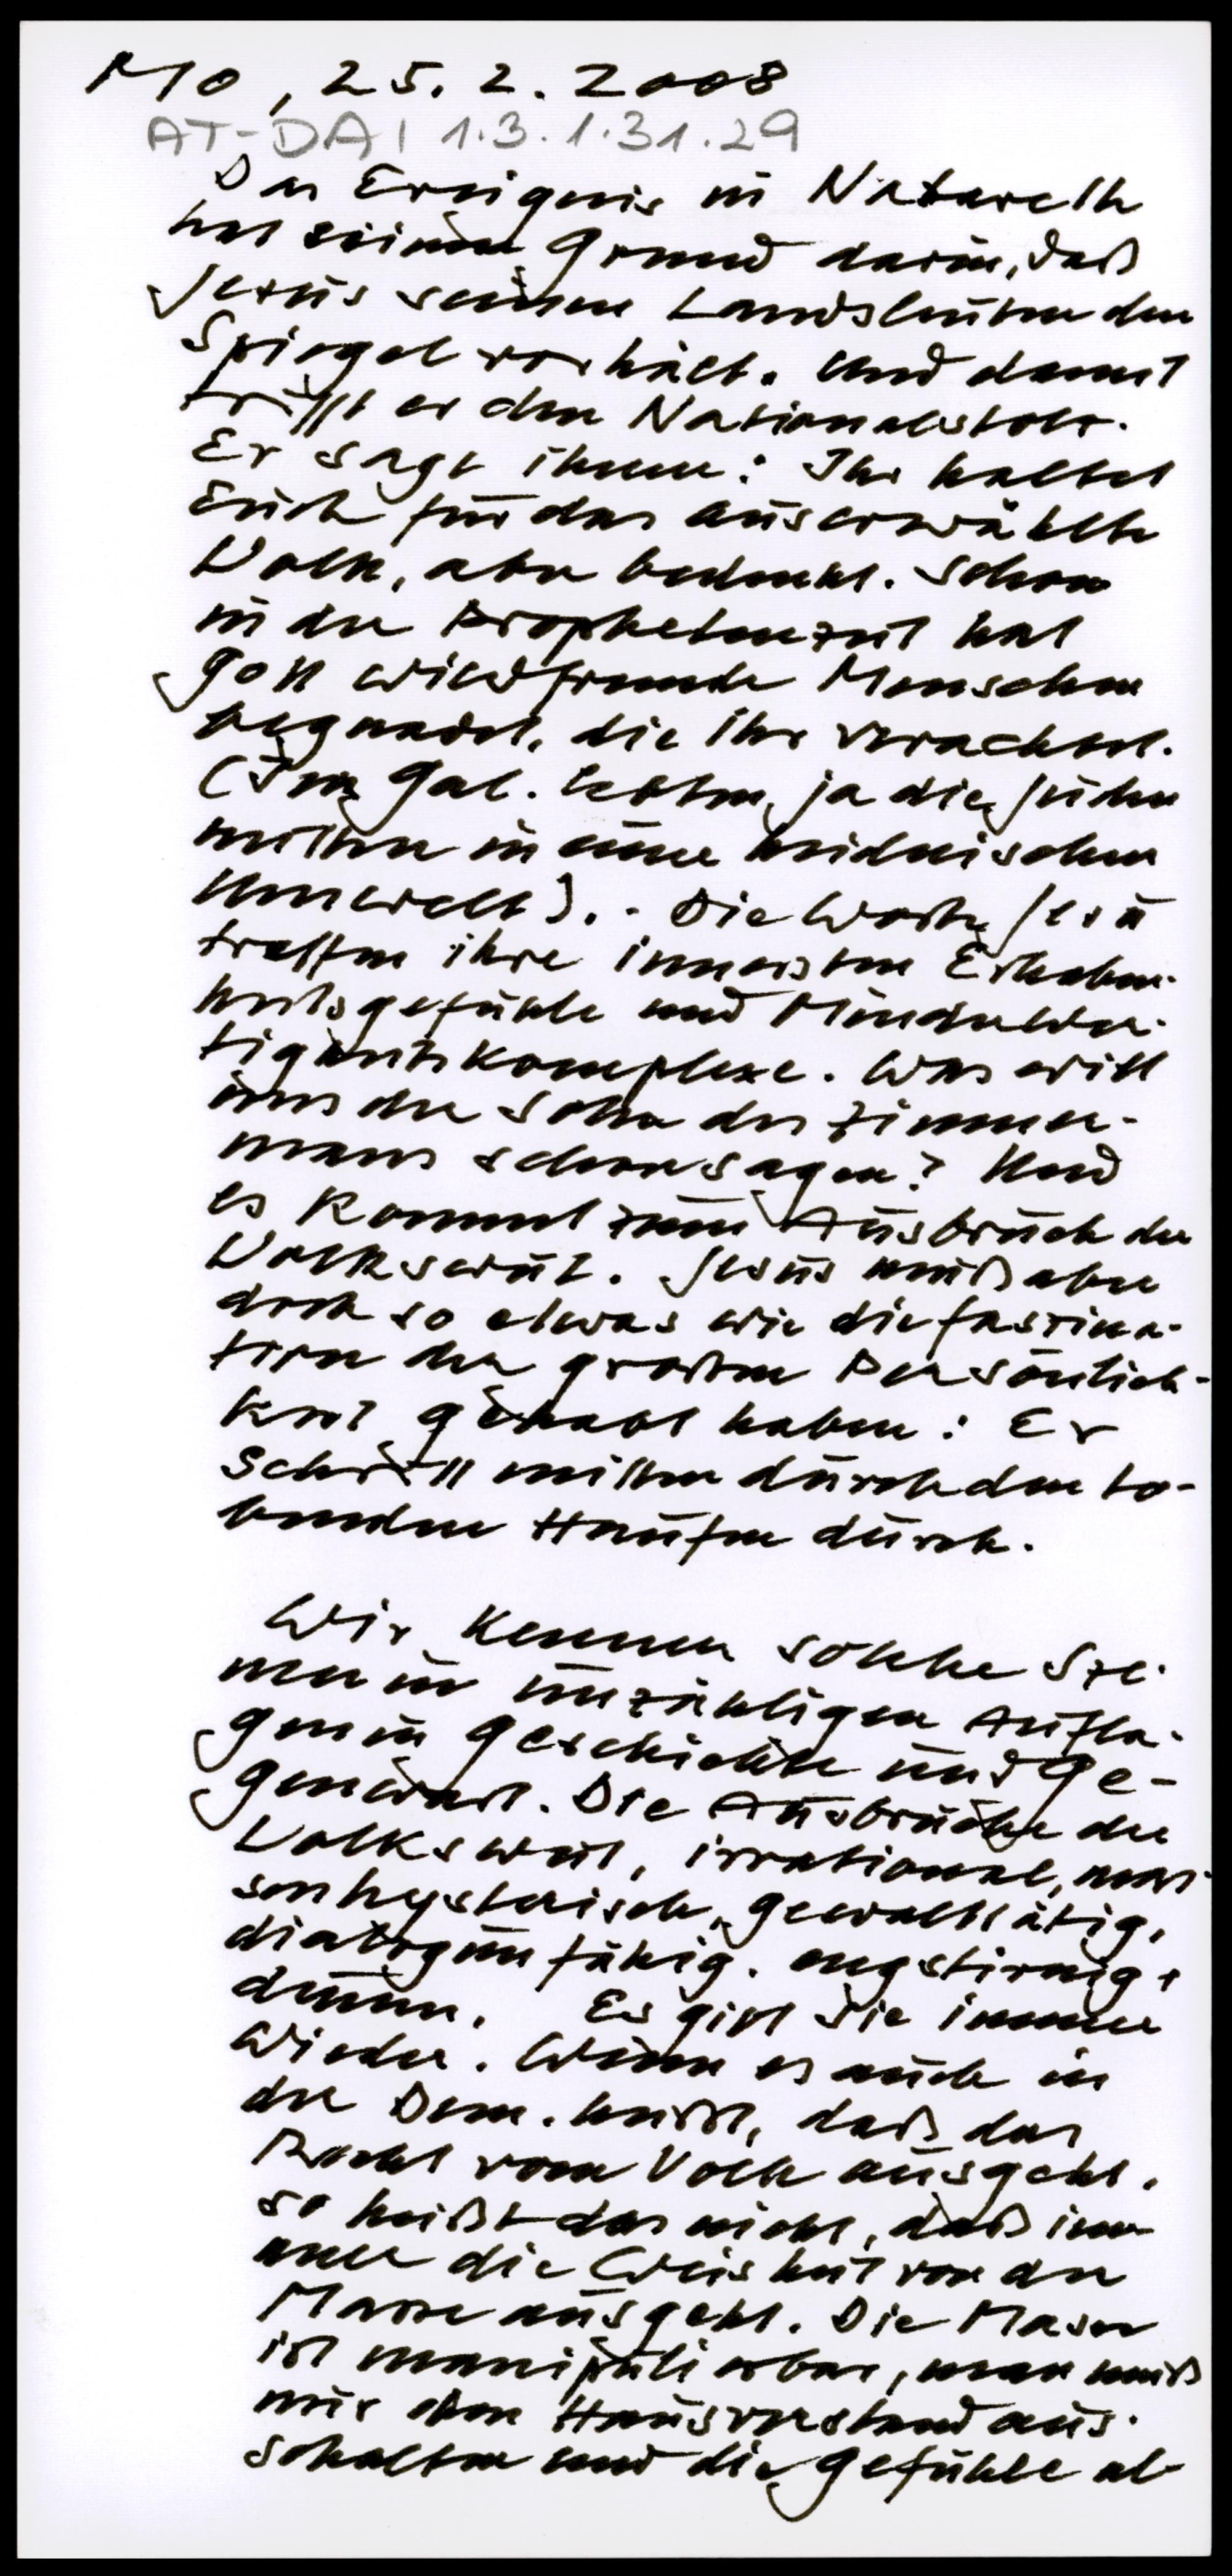 MO, 25.2.2008
AT-DAI 1.3.1.31.29
Das Ereignis in Nazareth
hat seinen Grund darin, daß
Jesus seinen Landsleuten den
Spiegel vorhält. Und damit
trifft er den Nationalstolz.
Er sagt ihnen: Ihr haltet
Euch für das auserwählte
Volk, aber bedenkt. Schon
in der Prophetenzeit hat
Gott wildfremde Menschen
begnadet, die ihr verachtet.
(Im Gal. lebten ja die Juden
mitten in einer heidnischen
Umwelt). - Die Worte Jesu
treffen ihre innersten Erhaben-
heitsgefühle und Minderwer-
tigkeitskomplexe. Was will
uns der Sohn des Zimmer-
manns schon sagen? Und
es kommt zum Ausbruch der
Volkswut. Jesus muß aber
doch so etwas wie die Faszina-
tion der großen Persönlich-
keit gehabt haben: Er
schritt mitten durch den to-
benden Haufen durch.
Wir kennen solche Sze-
nen in unzähligen Aufla-
gen in Geschichte und Ge-
genwart. Die Ausbrüche der
Volkswut, irrational, mas-
senhysterisch, gewalttätig,
dialogunfähig, engstirnig,
dumm. Es gibt sie immer
wieder. Wenn es auch in
der Dem. heißt, daß das
Recht vom Volk ausgeht,
so heißt das nicht, daß im-
mer die Weisheit von der
Masse ausgeht. Die Masse
ist manipulierbar, man muß
nur den Hausverstand aus-
schalten und die Gefühle al-